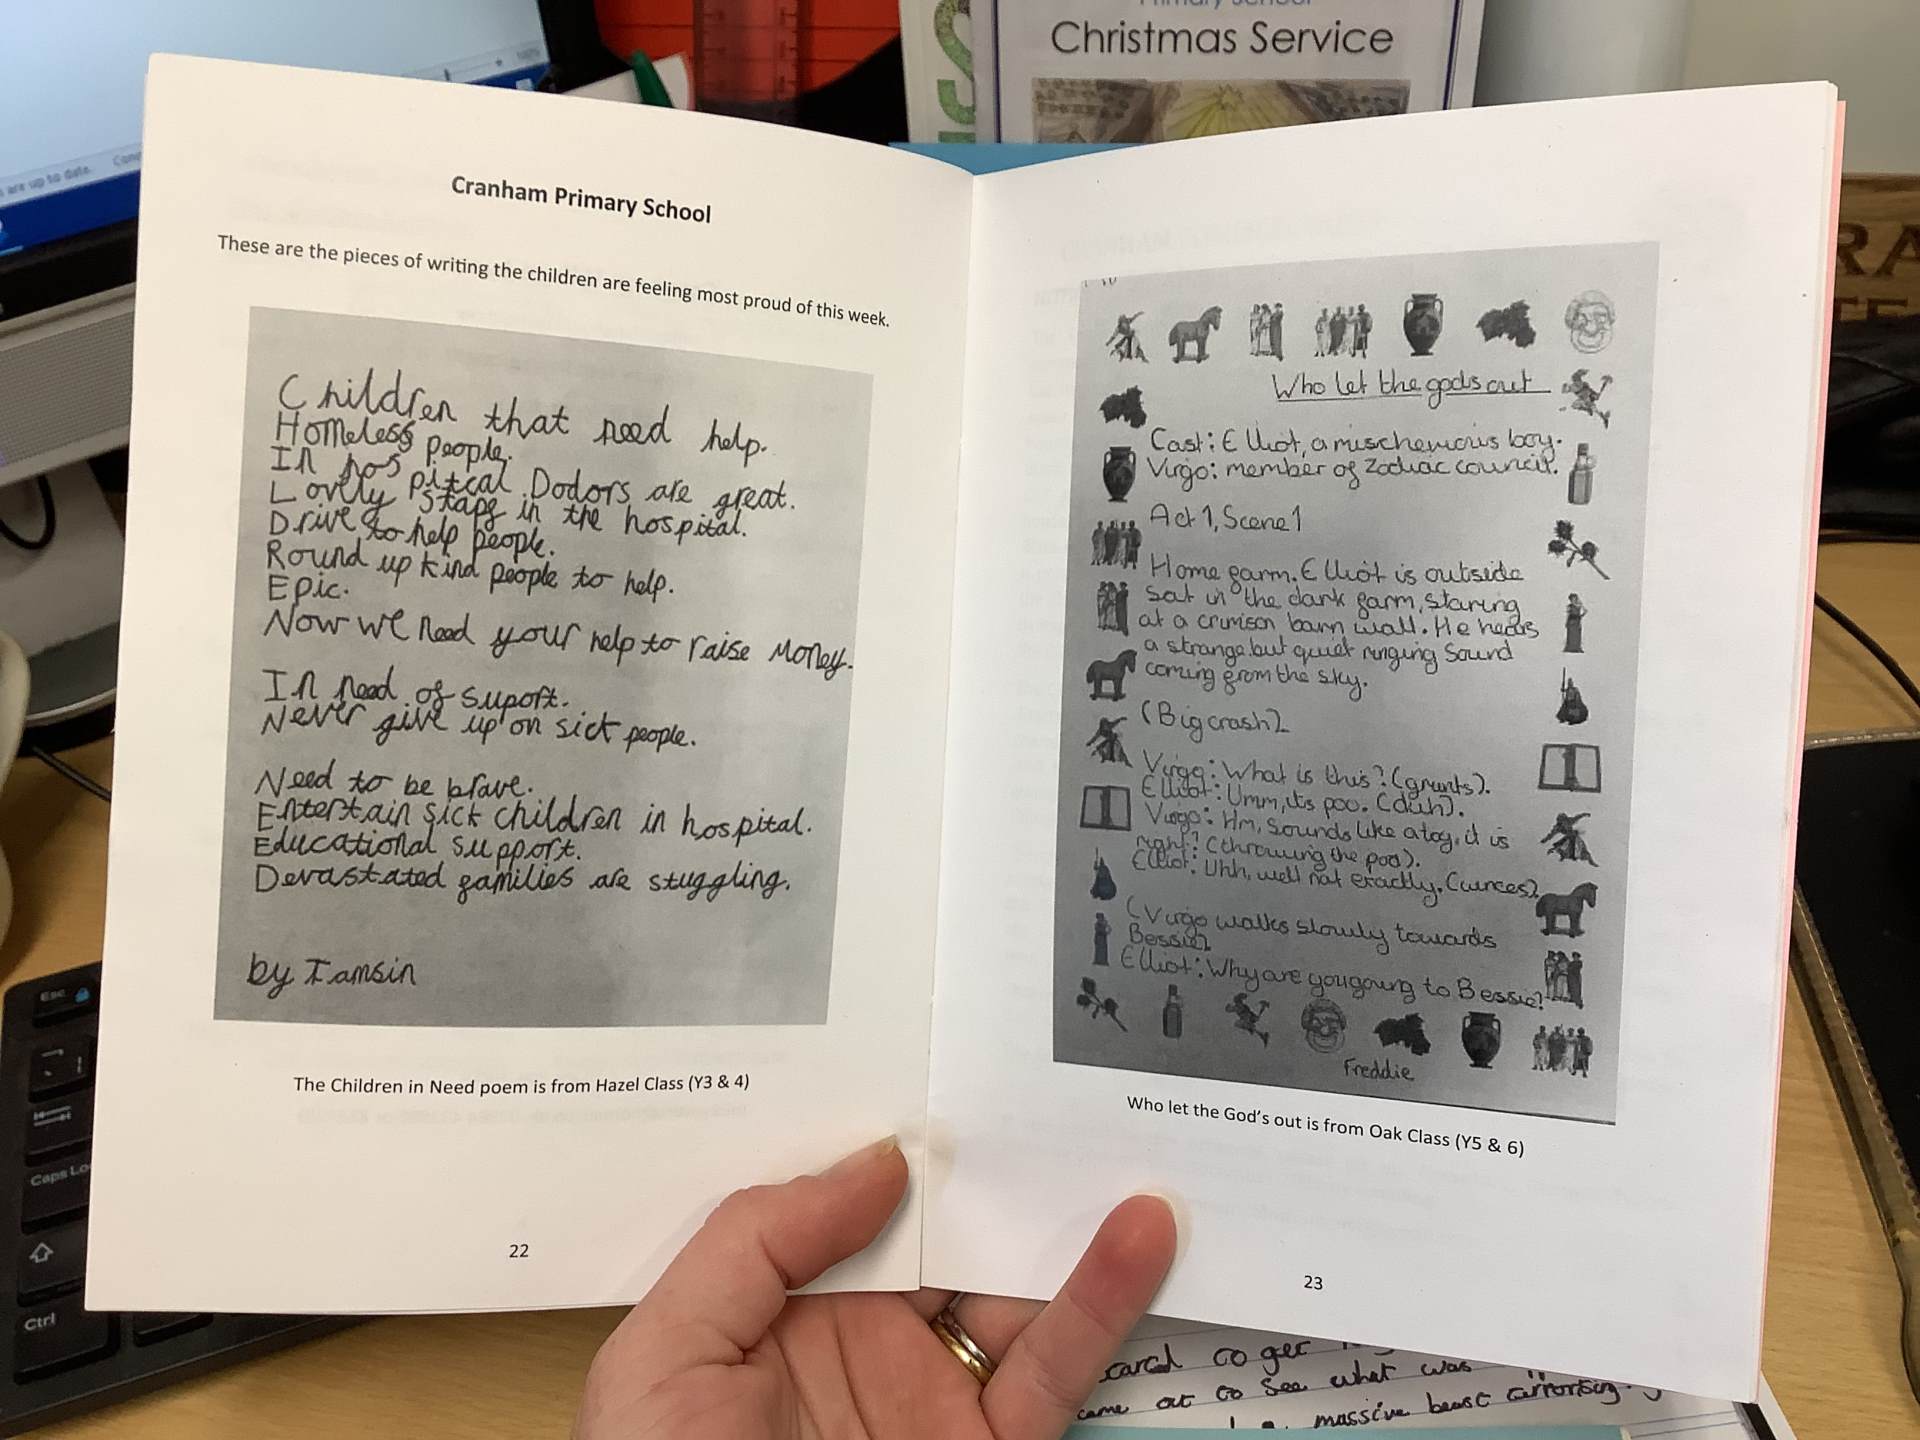 Primary School
Christmas Service
100%
s are up to date.
RA
TE
Cranham Primary School
These are the pieces of writing the children are feeling most proud of this week.
Children that need help.
Homeless people.
In hospitcal Dodors are great.
Lovely staff in the hospital.
Drive to help people.
Round up kind people to help.
Epic.
Now we need your help to raise money.
In need of suport.
Never give up on sick people.
Need to be brave.
Entertain sick children in hospital.
Educational support.
Devastated families are stuggling.
by Tamsin
The Children in Need poem is from Hazel Class (Y3 & 4)
22
Who let the gods out
Cast: Elliot, a mischeivious boy.
Virgo: member of Zodiac council.
Act 1, Scene 1
Home farm. Elliot is outside
sat in the dark farm, staring
at a crimson barn wall. He hears
a strange but quiet ringing sound
coming from the sky.
(Big crash)
Virgo: What is this? (grunts).
Elliot: Umm, its poo. (duh).
Virgo: Hm, sounds like a toy, it is
right? (throwing the poo).
Elliot: Uhh, well not exactly, (winces)
(Virgo walks slowly towards
Bessie)
Elliot: Why are you going to Bessie?
Freddie
Who let the God's out is from Oak Class (Y5 & 6)
23
Esc
Caps Lo
Ctrl
came out to see what was
massive beast